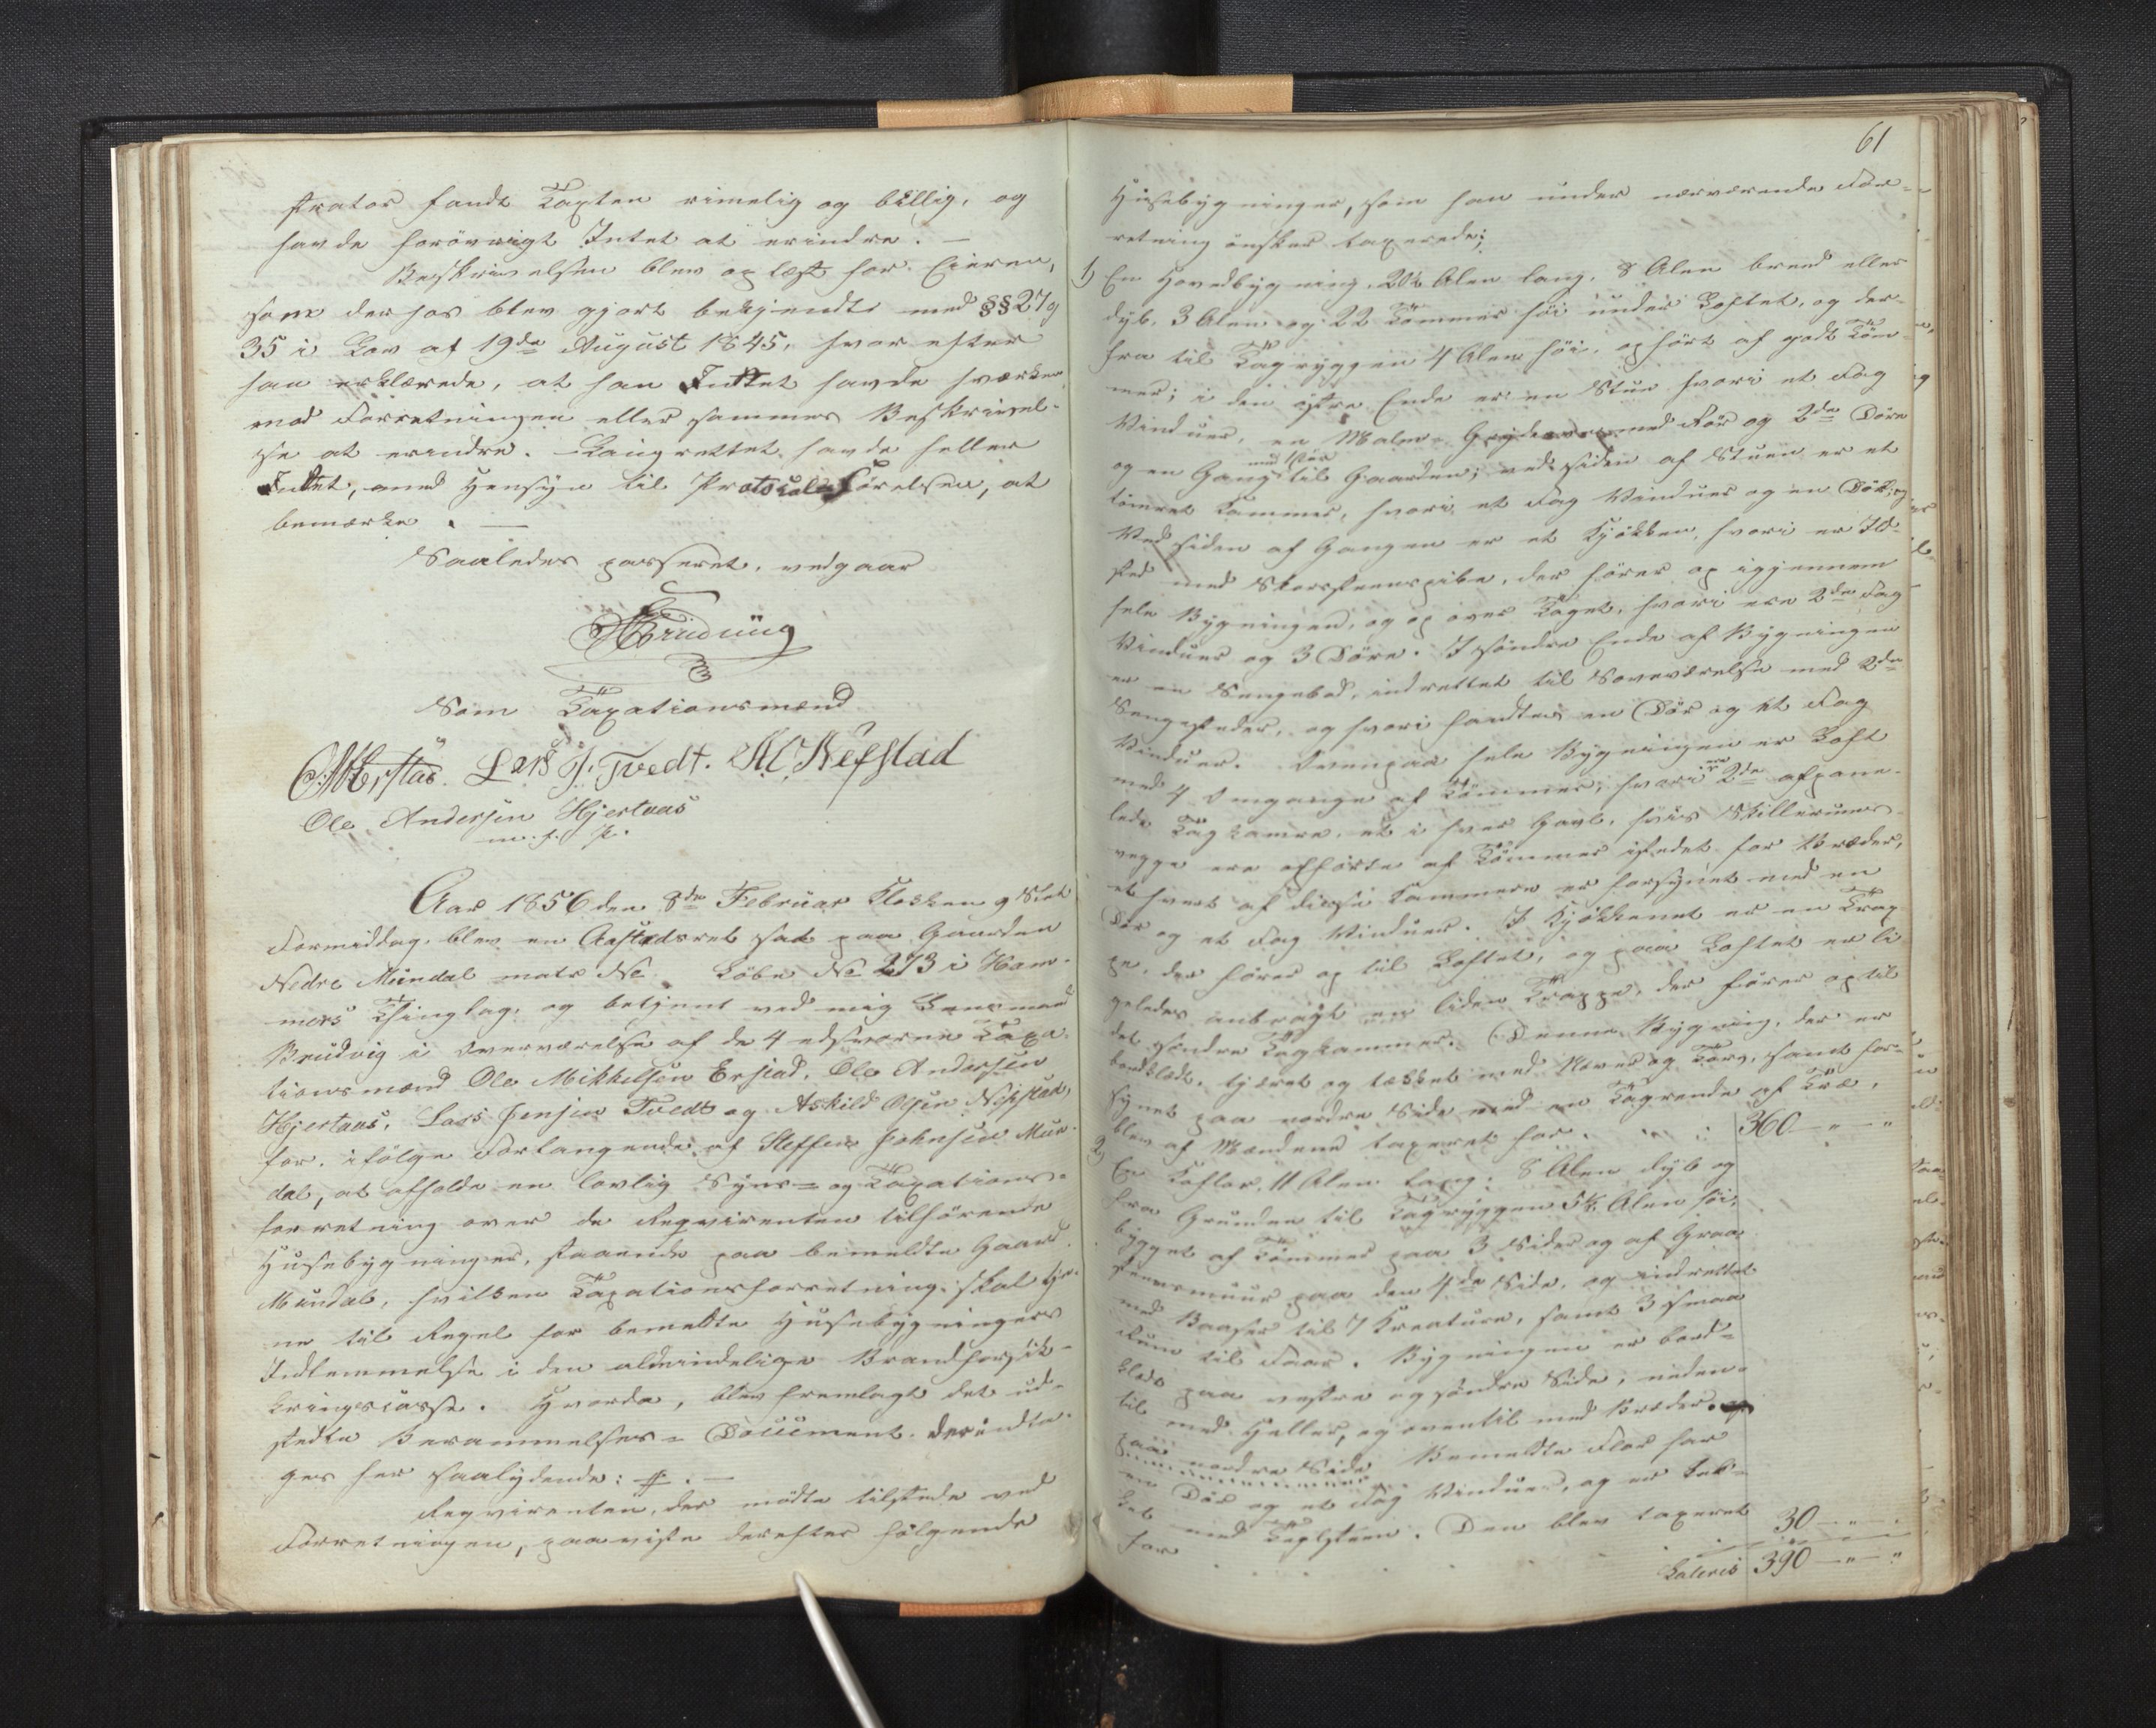 strator fandt Taxten rimelig og billig, og
havde forövrigt Intet at erindre. —
Beskrivelsen blev oplæst for Eieren,
som derhos blev gjort bekjendt med §§ 27 og
35 i Lov af 19de August 1845, hvorefter
han erklærede, at han Intet havde hverken
mod Forretningen eller sammes Beskrivel-
se at erindre. - Laugrettet havde heller
Intet, med Hensyn til Protokolförelsen, at
bemærke. —
Saaledes passeret, vedgaar
Brudvig
Som Taxationsmænd
O. M. Erstad. Lars J. Tvedt. A. O. Nepstad
Ole Andersen Hjertaas
m. f. P.
Aar 1856 den 8de Februar Klokken 9 Slet
Formiddag, blev en Aastedsret sat paa Gaarden
Nedre Mundal matr No Löbe No 273 i Ham-
mers Thinglag, og betjent ved mig Lensmand
Brudvig i Overværelse af de 4 edsvorne Taxa-
tionsmænd Ole Mikkelsen Erstad, Ole Andersen
Hjertaas, Lars Jensen Tvedt og Askild Olsen Nepstad,
for, ifölge Forlangende af Steffen Johnsen Mun-
dal, at afholde en lovlig Syns- og Taxations-
forretning over de Reqvirenten tilhörende
Husebygninger, staaende paa bemeldte Gaard
Mundal, hvilken Taxationsforretning skal tje-
ne til Regel for bemeldte Husebygningers
Indlemmelse i den almindelige Brandforsik-
kringscasse. Hvorda, blev fremlagt det ud-
stedte Berammelses-Document, der indta-
ges her saalydende: #. —
Reqvirenten, der mödte tilstede ved
Forretningen, paaviste derefter fölgende
61
Husebygninger, som han under nærværende For-
retning önsker taxerede:
1) En Hovedbygning, 20½ Alen lang, 8 Alen breed eller
dyb, 3 Alen og 22 Tommer höi under Loftet, og der-
fra til Tagryggen 4 Alen höi, opfört af godt Töm-
mer; i den östre Ende er en Stue hvori et Fag
Vinduer, en Malm- med Rör og 2de Döre
og en Gang med Dör til Gaarden; ved Siden af Stuen er et
tömret Kammer, hvori et Fag Vinduer og en Dör; og
Ved Siden af Gangen er et Kjökken, hvori er Ild-
sted med Skorsteenspibe, der förer op igjennem
hele Bygningen, og op over Taget, hvori ere 2de Fag
Vinduer og 3 Döre. I söndre Ende af Bygningen
er en Sengebod, indrettet til Soveværelse med 2de
Sengesteder, og hvori fandtes en Dör og et Fag
Vinduer. Ovenpaa hele Bygningen er Loft
med 4 Omgange af Tömmer, hvori ere 2de afpane-
lede Tagkamre, et i hver Gavl, hvis Skillerums-
vægge ere opförte af Tömmer istedet for Bræder,
et hvert af disse Kammere er forsynet med en
Dör og et Fag Vinduer. I Kjökkenet er en Trap-
pe, der förer op til Loftet, og paa Loftet er li-
geledes anbragt en liden Trappe, der förer op til
det söndre Tagkammer. Denne Bygning, der er
bordklædt, tjæret og tækket med Næver og Törv, samt for-
synet paa nordre Side med en Tagrende af Træ,
blev af Mændene taxeret for . . . 360 — " — "
2) En Koflor, 11 Alen lang, 8 Alen dyb og
fra Grunden til Tagryggen 5½ Alen höi,
bygget af Tömmer paa 3 Sider og af Graa-
steensmuur paa den 4de Side, og indrettet
med Baaser til 7 Kreature, samt 3 smaa
Rum til Faar. Bygningen er bord-
klædt paa vestre og söndre Side, neden-
til med Heller, og oventil med Bræder.
paa nordre Side Bemeldte Flor har
en Dör og et Fag Vinduer, og er tæk-
ket med Teglsteen. Den blev taxeret
for . . . . . 30 — " — "
Lateris 390 — " — "